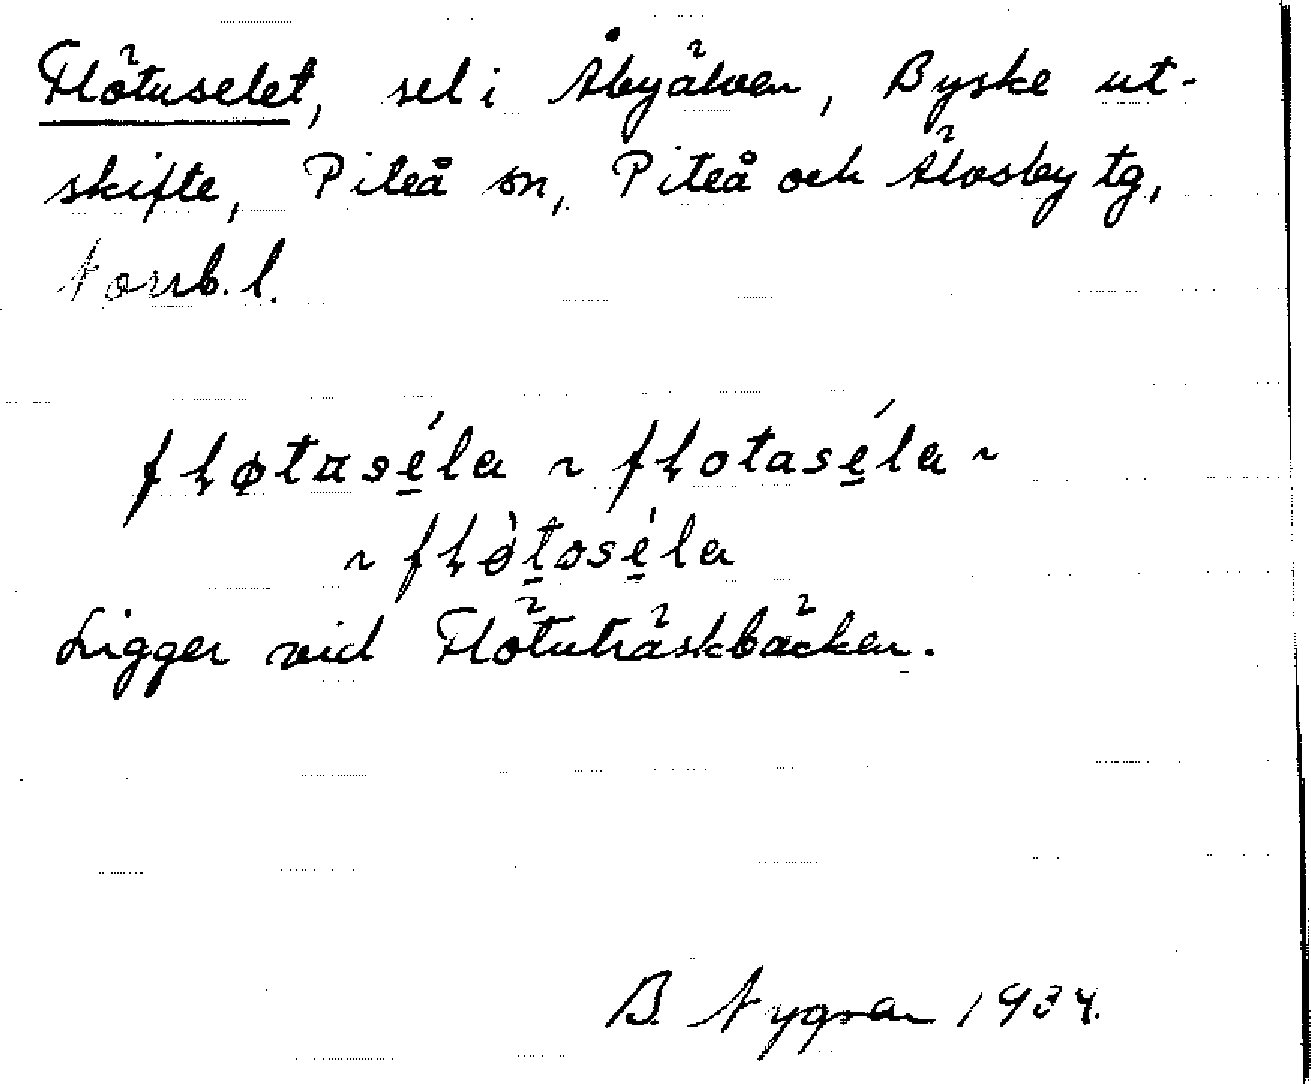 Flötuselet, sel i Åbyälven, Byske ut-
skifte, Piteå sn, Piteå och Älvsby tg,
Norrb. l.
fłøtase̱´la ~ fłotase̱´la ~
~ fłø̀ṯose̱´la
Ligger vid Flötuträskbäcken.
B. Nygren 1934.